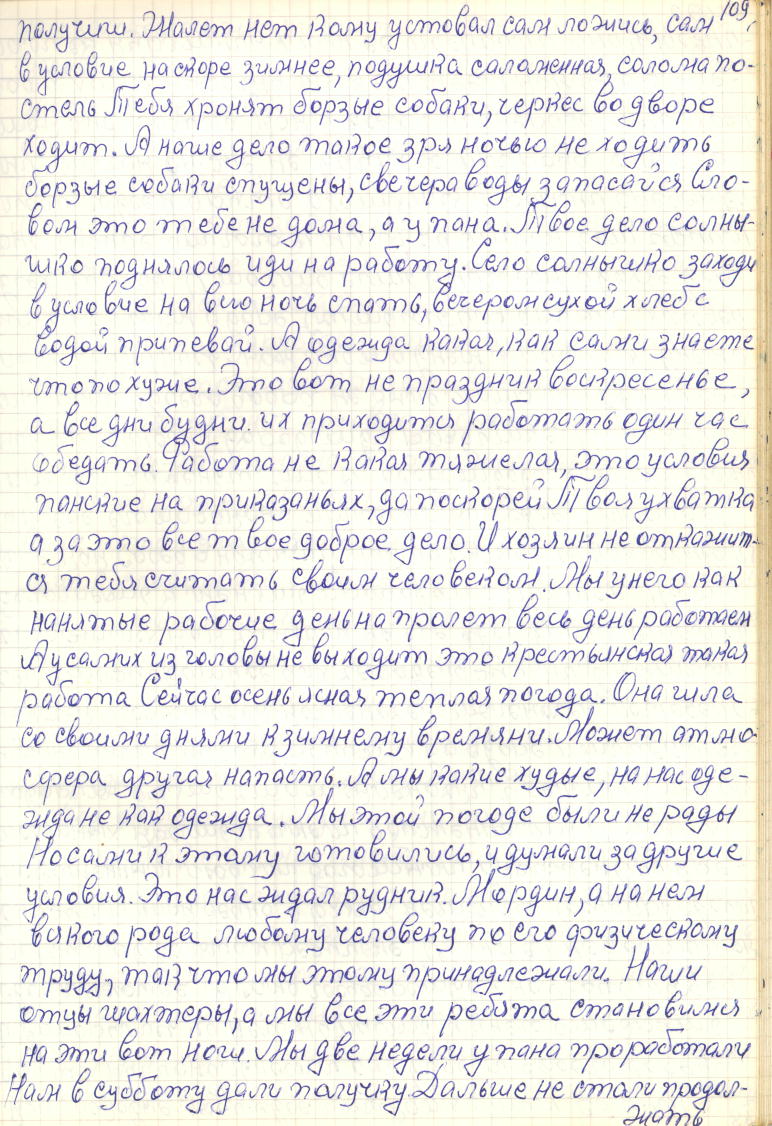 109.
получили. Жалет нет кому устовал сам ложись, сам
в условие наскоре зимнее, подушка саломенная, солома по-
стель Тебя хронят борзые собаки, черкес во дворе
ходит. А наше дело такое зря ночью не ходить
борзые собаки спущены, свечера воды запасайся Сло-
вом это тебе не дома, а у пана. Твое дело солны-
шко поднялось иди на работу. Село солнышко заходи
в условие на всю ночь спать, вечером сухой хлеб с
водой припевай. А одежда какая, как сами знаете
что по хуже. Это вот не праздник воскресенье,
а все дни будни. их приходится работать один час
обедать. Работа не какая тяжелая, это условия
панские на приказаньях, да поскорей Твоя ухватка
а за это все твое доброе дело. И хозяин не откажит-
ся тебя считать своим человеком. Мы у него как
нанятые рабочие день на пролет весь день работаем
А у самих из головы не выходит это крестьянская такая
работа Сейчас осень ясная теплая погода. Она шла
со своими днями к зимнему времяни. Может атмо-
сфера другая напасть. А мы какие худые, на нас оде-
жда не как одежда. Мы этой погоде были не рады
Но сами к этому готовились, и думали за другие
условия. Это нас ждал рудник. Мордин, а на нем
всякого рода любому человеку по его физическому
труду, так что мы этому принадлежали. Наши
отцы шахтеры, а мы все эти ребята становимся
на эти вот ноги. Мы две недели у пана проработали
Нам в субботу дали получку Дальше не стали продол-
жать